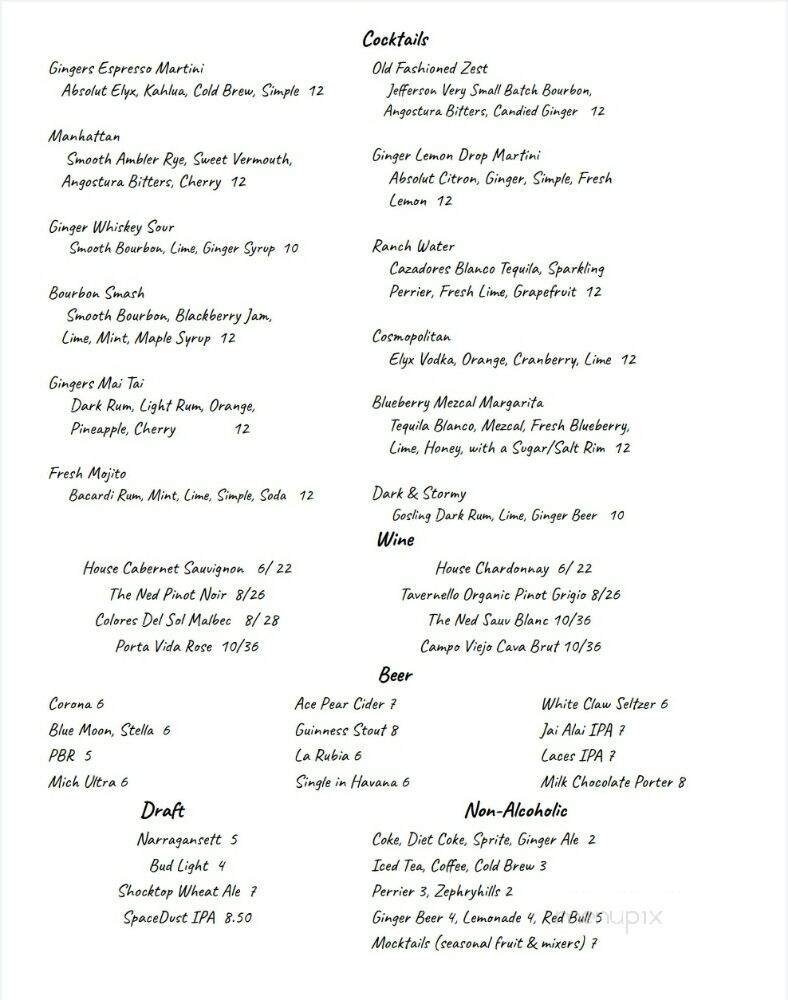 Cocktails
Gingers Espresso Martini
Absolut Elyx, Kahlua, Cold Brew, Simple 12
Manhattan
Smooth Ambler Rye, Sweet Vermouth,
Angostura Bitters, Cherry 12
Ginger Whiskey Sour
Smooth Bourbon, Lime, Ginger Syrup 10
Bourbon Smash
Smooth Bourbon, Blackberry Jam,
Lime, Mint, Maple Syrup 12
Gingers Mai Tai
Dark Rum, Light Rum, Orange,
Pineapple, Cherry 12
Fresh Mojito
Bacardi Rum, Mint, Lime, Simple, Soda 12
Old Fashioned Zest
Jefferson Very Small Batch Bourbon,
Angostura Bitters, Candied Ginger 12
Ginger Lemon Drop Martini
Absolut Citron, Ginger, Simple, Fresh
Lemon 12
Ranch Water
Cazadores Blanco Tequila, Sparkling
Perrier, Fresh Lime, Grapefruit 12
Cosmopolitan
Elyx Vodka, Orange, Cranberry, Lime 12
Blueberry Mezcal Margarita
Tequila Blanco, Mezcal, Fresh Blueberry,
Lime, Honey, with a Sugar/Salt Rim 12
Dark & Stormy
Gosling Dark Rum, Lime, Ginger Beer 10
Wine
House Cabernet Sauvignon 6/ 22
The Ned Pinot Noir 8/26
Colores Del Sol Malbec 8/ 28
Porta Vida Rose 10/36
House Chardonnay 6/ 22
Tavernello Organic Pinot Grigio 8/26
The Ned Sauv Blanc 10/36
Campo Viejo Cava Brut 10/36
Beer
Corona 6
Blue Moon, Stella 6
PBR 5
Mich Ultra 6
Ace Pear Cider 7
Guinness Stout 8
La Rubia 6
Single in Havana 6
White Claw Seltzer 6
Jai Alai IPA 7
Laces IPA 7
Milk Chocolate Porter 8
Draft
Narragansett 5
Bud Light 4
Shocktop Wheat Ale 7
SpaceDust IPA 8.50
Non-Alcoholic
Coke, Diet Coke, Sprite, Ginger Ale 2
Iced Tea, Coffee, Cold Brew 3
Perrier 3, Zephryhills 2
Ginger Beer 4, Lemonade 4, Red Bull 5
Mocktails (seasonal fruit & mixers) 7
menupix